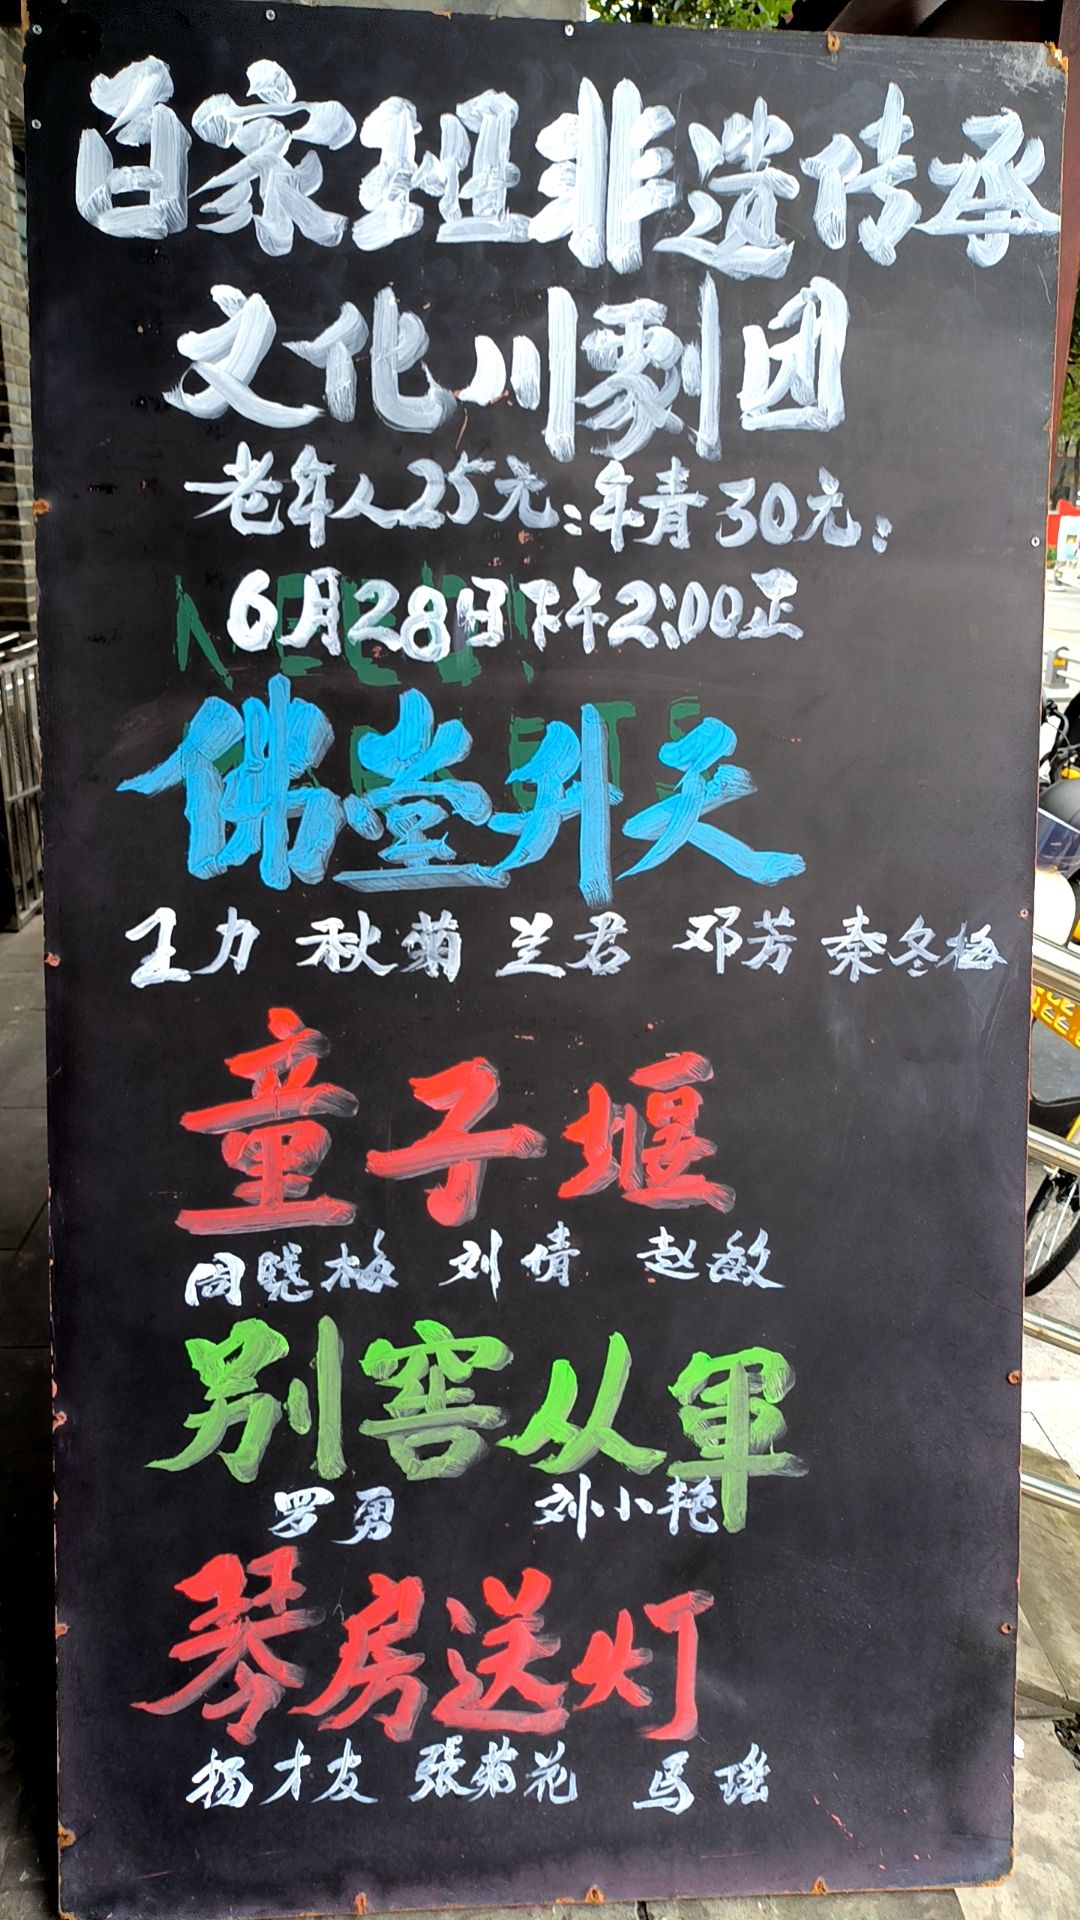 百家班非遗传承
文化川剧团
老年人25元;年青30元;
6月28日下午2:00正
佛堂升天
王力 秋菊 兰君 邓芳 秦冬梅
童子堰
周晓梅 刘倩 赵敏
别窖从軍
罗勇 刘小艳
琴房送灯
杨才友 張菊花 马瑶